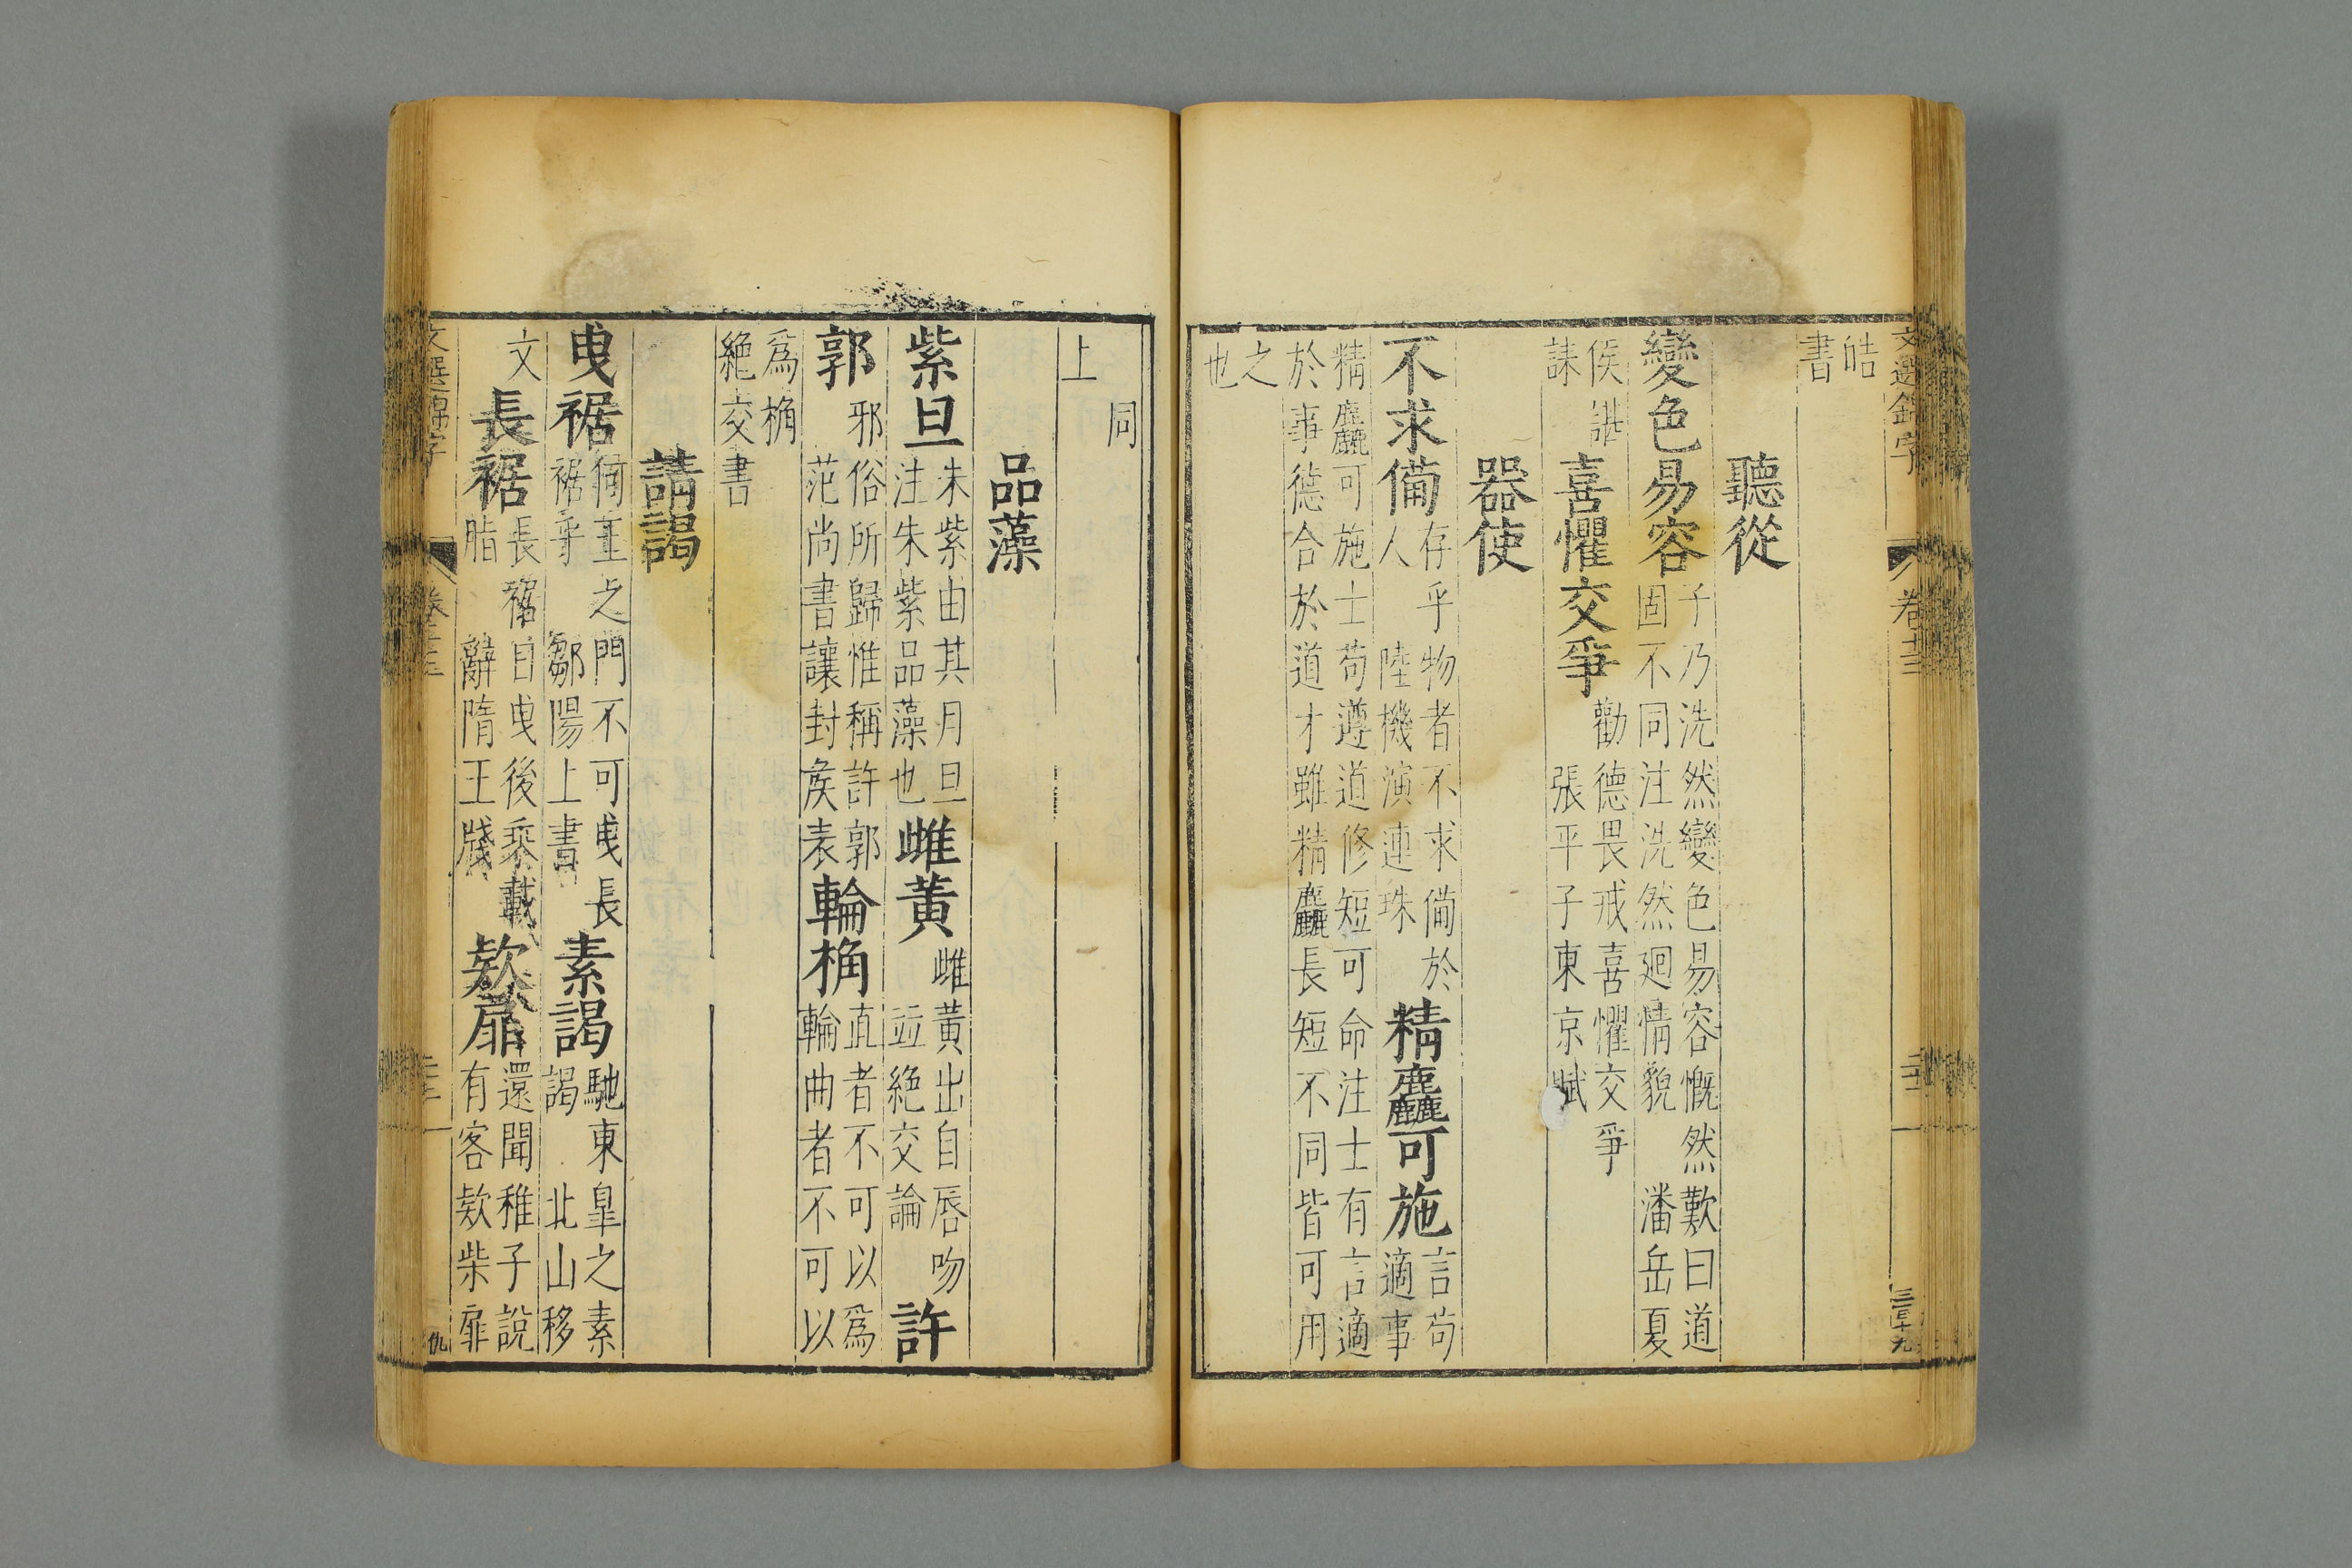 文選錦字
卷十三
三百十九
皓
書
聽從
變色易容 子乃洗然變色易容慨然歎曰道
固不同注洗然廻情貌 潘岳夏
侯諶
誄
喜懼交爭 勸德畏戒喜懼交爭
張平子東京賦
器使
不求備 存乎物者不求備於
人 陸機演連珠
精麤可施 言苟
適事
精麤可施士苟遵道修短可命注士有言適
於事德合於道才雖精麤長短不同皆可用
之
也
同
上
品藻
紫旦 朱紫由其月旦
注朱紫品藻也
雌黃 雌黃出自唇吻
並絕交論
許
郭 邪俗所歸惟稱許郭
范尚書讓封侯表
輪桷 直者不可以爲
輪曲者不可以
爲桷
絕交書
請謁
曳裾 何王之門不可曳長
裾乎 鄒陽上書
素謁 馳東皐之素
謁 北山移
文
長裾 長裾自曳後乘載
脂 辭隋王牋
欵扉 還聞稚子說
有客欵柴扉
文選錦字